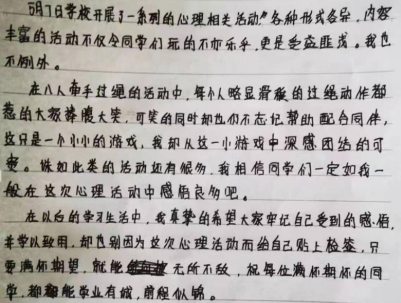 5月7日学校开展了一系列的心理相关活动"各种形式各异，内容
丰富的活动不仅令同学们玩的不亦乐乎，更是受益匪浅。我也
不例外。
在八人牵手过绳的活动中，每个人略显滑稽的过绳动作都
惹的大家捧腹大笑，可笑的同时却也们不忘记帮助配合同伴，
这只是一个小小的游戏，我却从这一小游戏中深感团结的可
贵。诸如此类的活动还有很多，我相信同学们一定如我一
般在这次心理活动中感悟良多吧。
在以后的学习生活中，我真挚的希望大家牢记自己受到的感悟，
并学以致用，却也别因为这次心理活动而给自己贴上标签，只
要满怀期望，就能无所不敌，祝每位满怀期怀的同
学，都能学业有成，前程似锦。